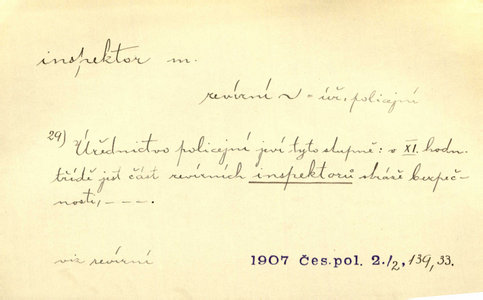 inspektor m.
revírní ~ = úř. policejní
29) Úřednictvo policejní jeví tyto stupně: v XI. hodn.
třídě jest část revírních inspektorů stráže bezpeč-
nosti, – – – .
viz revírní
1907 Čes. pol. 2./2, 139, 33.